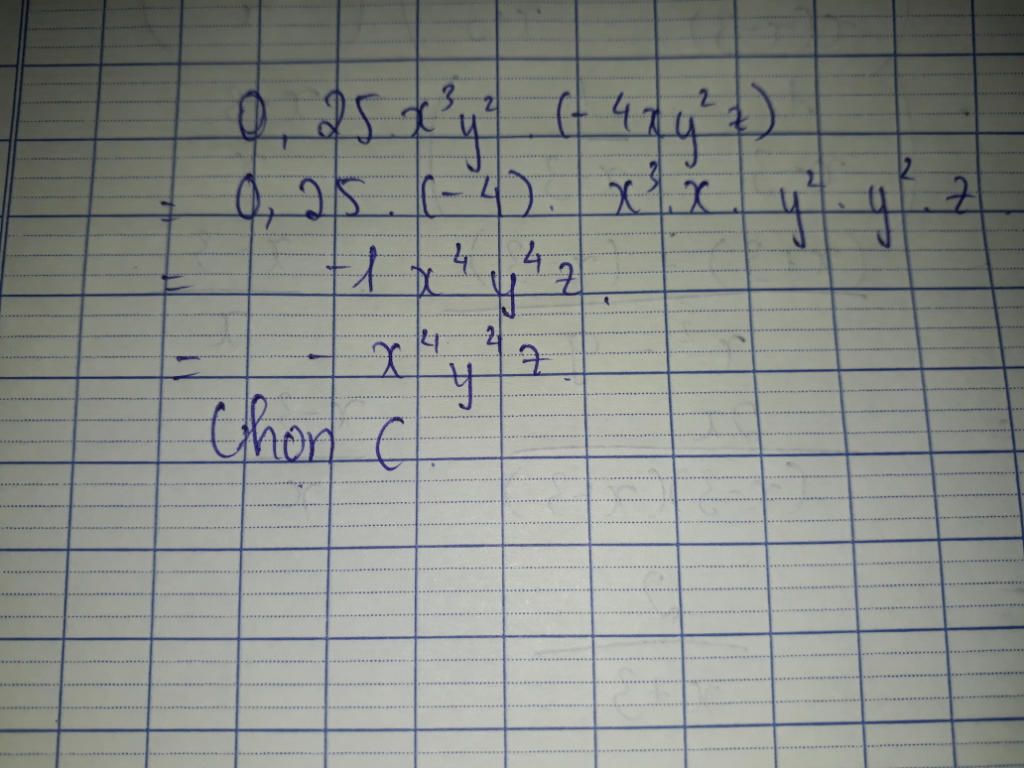 0,25.x³y².(-4xy²z)
= 0,25.(-4). x³.x. y².y².z.
= -1 x⁴y⁴z.
= - x⁴y⁴z.
Chon C.